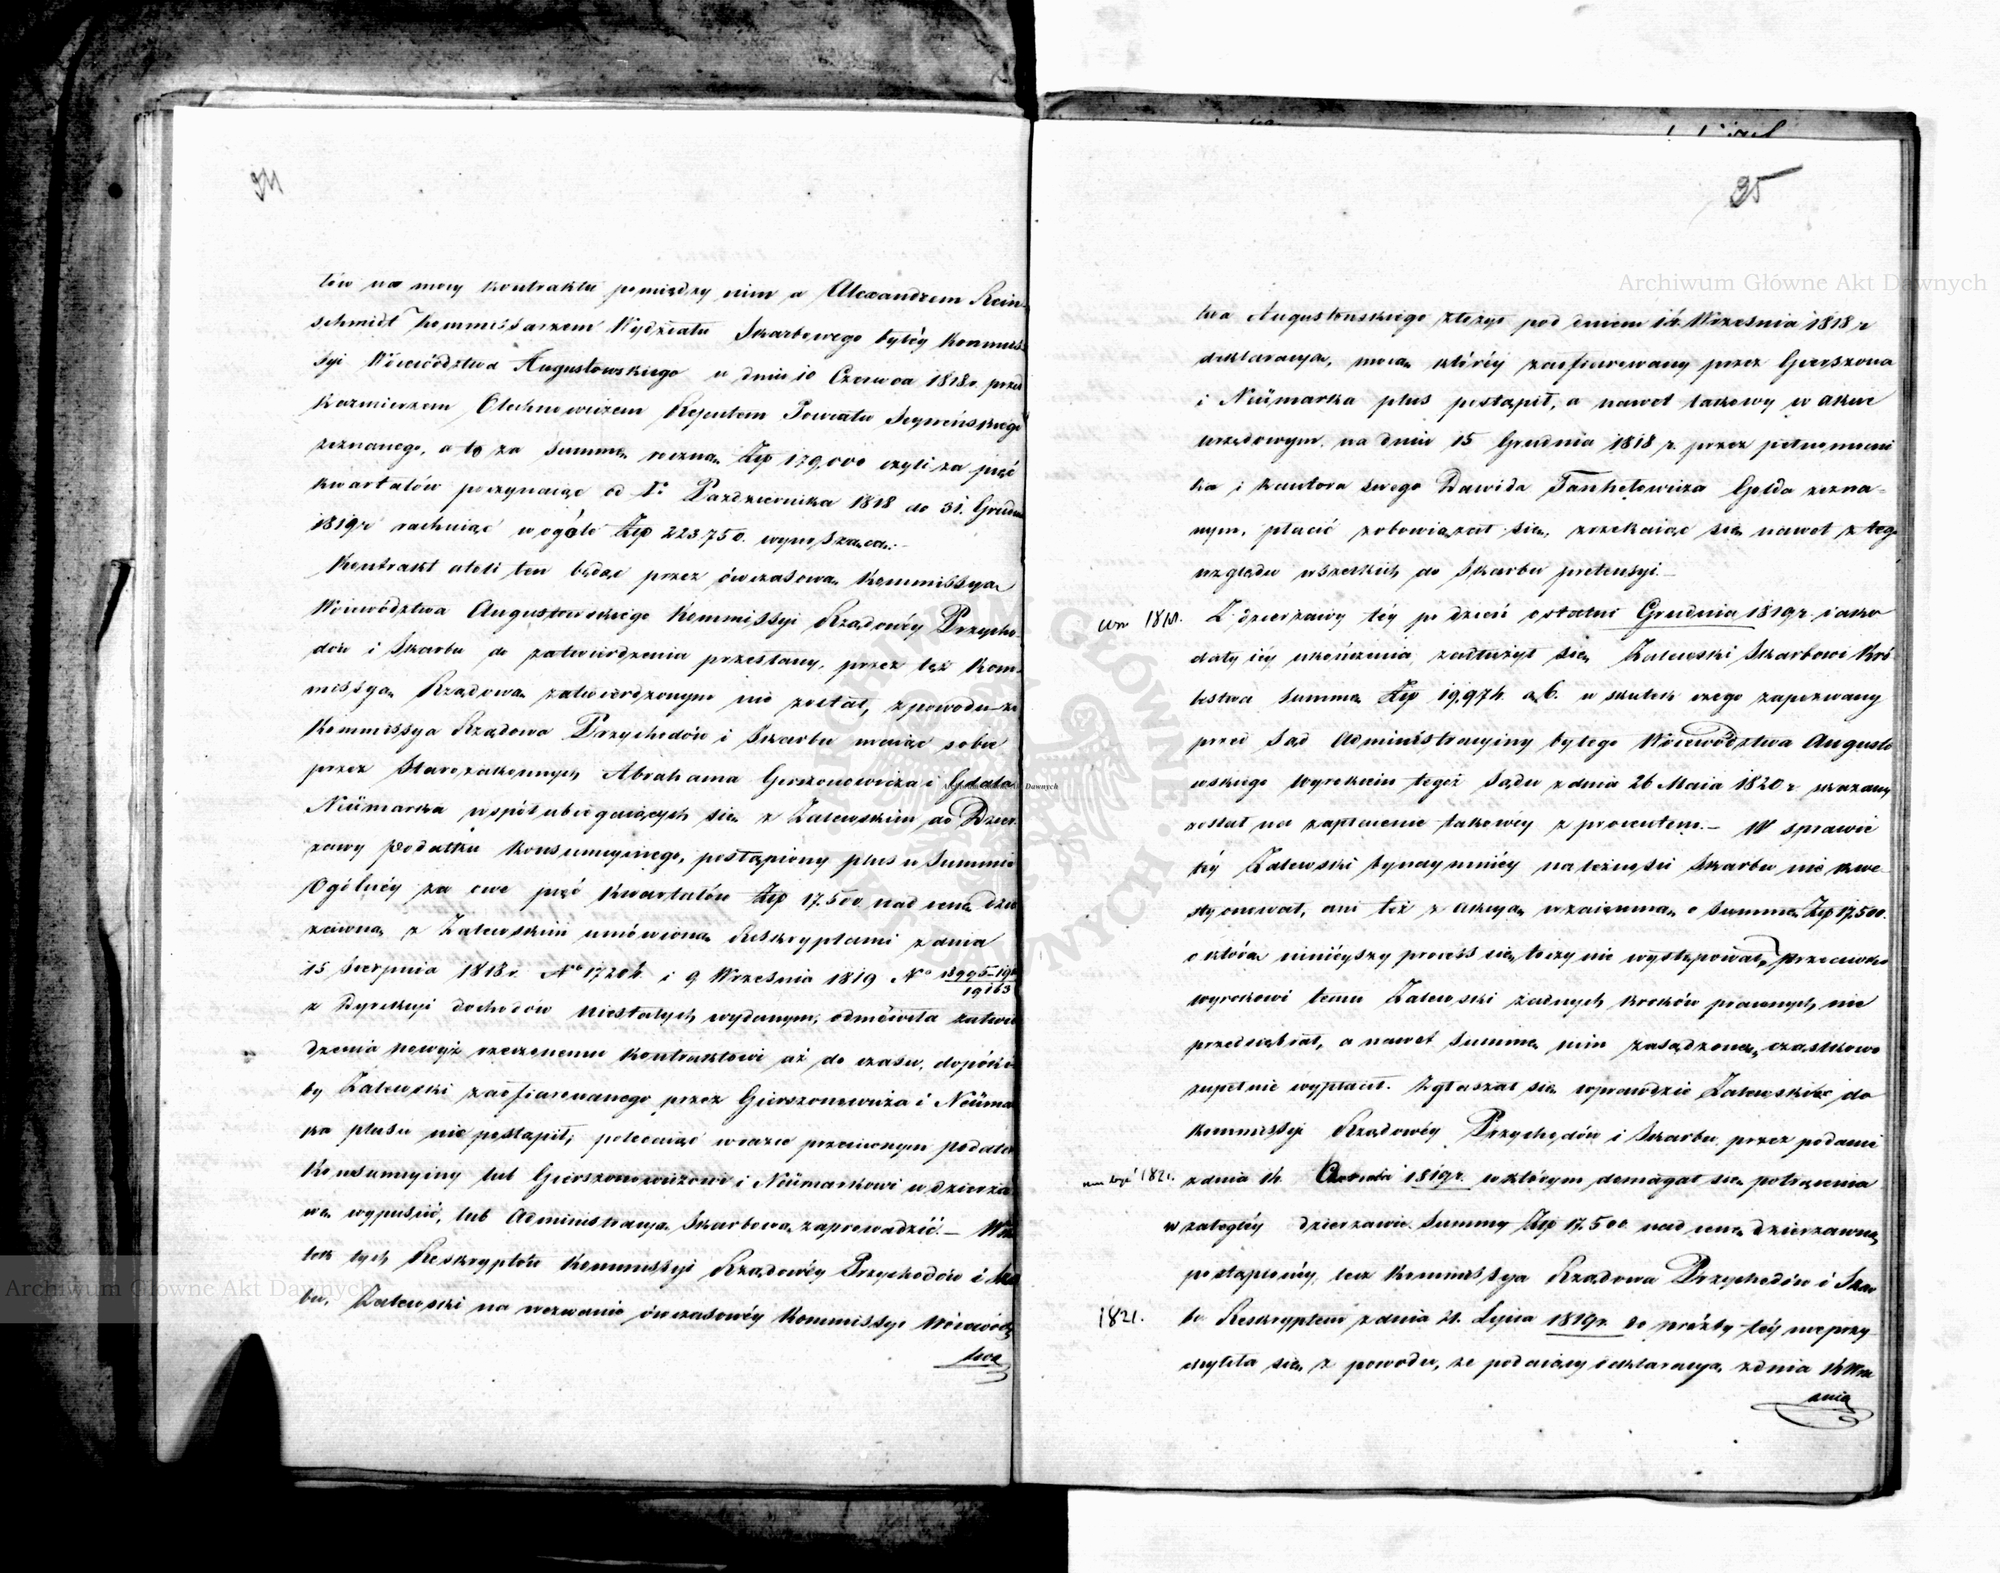 94
tów na mocy kontraktu pomiędzy nim a Alexandrem Rein-
schmidt Kommissarzem Wydziału Skarbowego byłéy Kommis
syi Wóiewództwa Augustowskiego w dniu 10 Czerwca 1818 r. przed
Kazmierzem Olechnowiczem Rejentem Powiatu Seyneńskiego
zeznanego, a to za summę roczną Złp 179,000 czyli za pięć
kwartałów poczynaiąc od 1o Pazdziernika 1818 do 31. Grudnia
1819 r rachuiąc w ogóle Złp 223.750. wynoszącą.-
Kontrakt ateli ten będąc przez ówczasową Kommissyą
Wóiewództwa Augustowskiego Kommissyi Rządowéy Przycho-
dów i Skarbu do zatwierdzenia przesłany, przez też Kom-
missyą Rządową zatwierdzonym nie został, z powodu że
Kommissya Rządowa Przychodów i Skarbu maiąc sobie
przez Starozakonnych Abrahama Gerszonowicza i Gdala
Neümarka wspólubiegaiących się z Zalewskim do Dzier
zawy Podatku Konsumcyinego, postąpiony plus w Summie
Ogólnéy za owe pięć Kwartałów Złp 17.500 nad cenę dzier
zawną z Zalewskim umówioną Reskryptami z dnia
15 Sierpnia 1818 r. No 17204 i 9 Września 1819 No
19163
z Dyrekcyi dochodów niestałych wydanym, odmówiła zatwier
dzenia powyż rzeczonemu Kontraktowi aż do czasu, dopóki
by Zalewski zaofiarowanego przez Gierszonowicza i Neüma
ka plusu nie postąpił; polecaiąc w razie przeciwnym podatek
Konsumcyiny lub Gierszonowiczowi i Neümarkowi w dzierza
wę wypuścić, lub Administracyą Skarbową zaprowadzić. — W sku
tek tych Reskryptów Kommissyi Rządowéy Przychodów i Skar
bu, Zalewski na wezwanie ówczasowéy Kommissyi Wóiewódz
twa
95
twa Augustowskiego złożył pod dniem 14 Września 1818 r
deklaracyą, mocą któréy zaofiarowany przez Gierszona
i Neümarka plus postąpił, a nawet takowy w akcie
urzędowym na dniu 15 Grudnia 1818 r. przez pełnomocni
ka i kantora swego Dawida Tanhelowicza Gelda zezna-
nym, płacić zobowiązał się, zrzekaiąc się nawet z tego
względu wszelkich do Skarbu pretensyi.—
1818. Z dzierzawy téy po dzień ostatni Grudnia 1819 r. iako
daty iéy ukończenia zadłużył się Zalewski Skarbowi Kró
lestwa Summę Złp 19,974 g 6. w skutek czego zapozwany
przed Sąd Administracyiny byłego Wóiewództwa Augusto
wskiego Wyrokiem tegoż Sądu z dnia 26 Maia 1820 r skazany
został na zapłacenie takowéy z procentem.— W sprawie
téy Zalewski bynaymniéy należności Skarbu nie kwe-
styonował, ani też z akcyą wzaiemną o Summę Złp 17,500.
o którą ninieyszy process się toczy nie występował, przeciwko
wyrokowi temu Zalewski żadnych kroków prawnych nie
przedsiębrał, a nawet Summę nim zasądzoną, cząstkowo
zupełnie wypłacił. Zgłaszał się wprawdzie Zalewski do
Kommissyi Rządowéy Przychodów i Skarbu, przez podanie
1821. z dnia 14. Czerwca 1819 r. w którym domagał się potrącenia
w zaległéy dzierzawie Summy Złp 17.500 nad cenę dzierzawną
postąpionéy, lecz Kommissya Rządowa Przychodów i Skar
1821. bu Reskryptem z dnia 21. Lipca 1819 r. do proźby téy nieprzy
chyliła się z powodu, że podaiący deklaracyą z dnia 14 Wrze
śnia
Archiwum Główne Akt Dawnych
Archiwum Główne Akt Dawnych
Archiwum Główne Akt Dawnych
ARCHIWUM GŁÓWNE AKT DAWNYCH